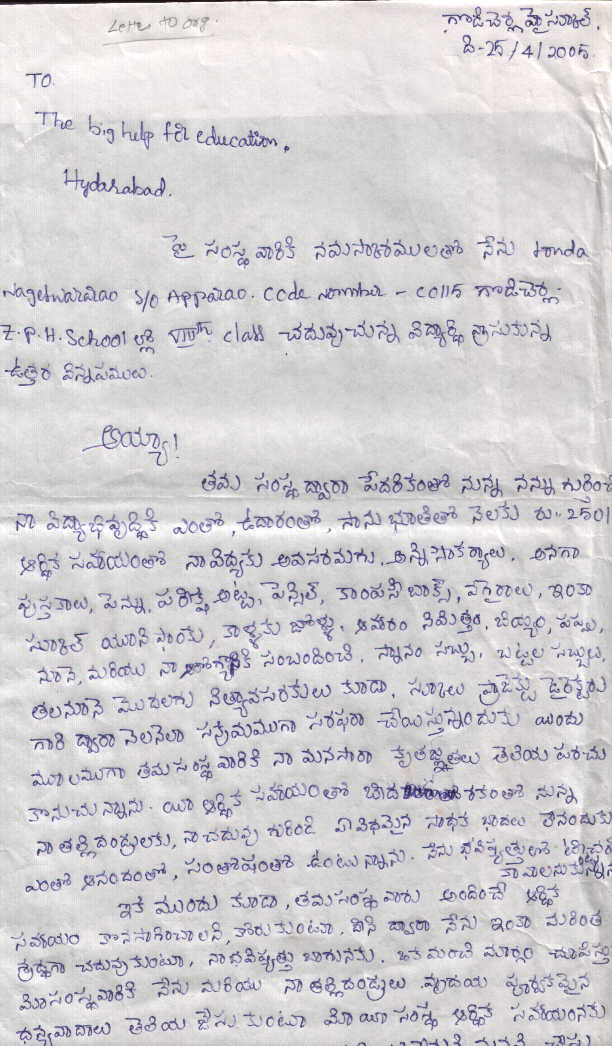 Letter to org.
గొడిచెర్ల హైస్కూల్.
ది-25/4/2005.
TO.
The big help for education.
Hyderabad.
పై సంస్థ వారికి నమస్కారములతో నేను tonda
Nageswararao S/o Apparao. Code nomber - C0115 గొడిచెర్ల-
Z.P.H. School లో class చదువుచున్న విద్యార్థి వ్రాసుకున్న
ఉత్తర విన్నపములు.
అయ్యా!
తమ సంస్థ ద్వారా పేదరికంతో నున్న నన్ను గుర్తించి
నా విద్యాభివృద్ధికి ఎంతో, ఉదారంతో, సానుభూతితో నెలకు రు-250/
ఆర్థిక సహాయంతో నా విద్యకు అవసరమగు, అన్ని సౌకర్యాలు. అనగా
పుస్తకాలు, పెన్ను, పరీక్ష అట్ట, పెన్సిల్, కాంపస్ బాక్స్, వగైరాలు, ఇంకా
స్కూల్ యూనిఫారంకు, కాళ్ళకు జోళ్ళు, ఆహారం నిమిత్తం, బియ్యం, పప్పు,
నూనె, మరియు నా ఆరోగ్యానికి సంబందించి, స్నానం సబ్బు, బట్టల సబ్బులు,
తలనూనె మొదలగు నిత్యావసరకులు కూడా, స్కూలు ప్రాజెక్టు డైరెక్టరు
గారి ద్వారా నెలనెలా సక్రమముగా సరఫరా చేయిస్తున్నందుకు యిందు
మూలముగా తమ సంస్థ వారికి నా మనసారా కృతజ్ఞతలు తెలియ పరచు
కొనుచున్నాను. యీ ఆర్థిక సహాయంతో నున్న
నా తల్లిదండ్రులకు, నా చదువు గురించి ఏ విధమైన బాధలు లేనందుకు
ఎంతో ఆనందంతో, సంతోషంతో ఉంటున్నాను. నేను భవిష్యత్తులో టీచ్చరు
కావాలనుకున్నాను
ఇక ముందు కూడా, తమ సంస్థ వారు అందించే ఆర్థిక
సహాయం కొనసాగించాలని, కోరుకుంటూ, దీని ద్వారా నేను ఇంకా మరింత
శ్రద్ధగా చదువుకుంటూ, నా భవిష్యత్తు బాగునకు. ఒక మంచి మార్గం చూపిస్తు
మీ సంస్థవారికి నేను మరియు నా తల్లిదండ్రులు హృదయ పూర్వకమైన
ధన్యవాదాలు తెలియ జేసుకుంటూ మీ యీ సంస్థ ఆర్థిక సహాయంనకు